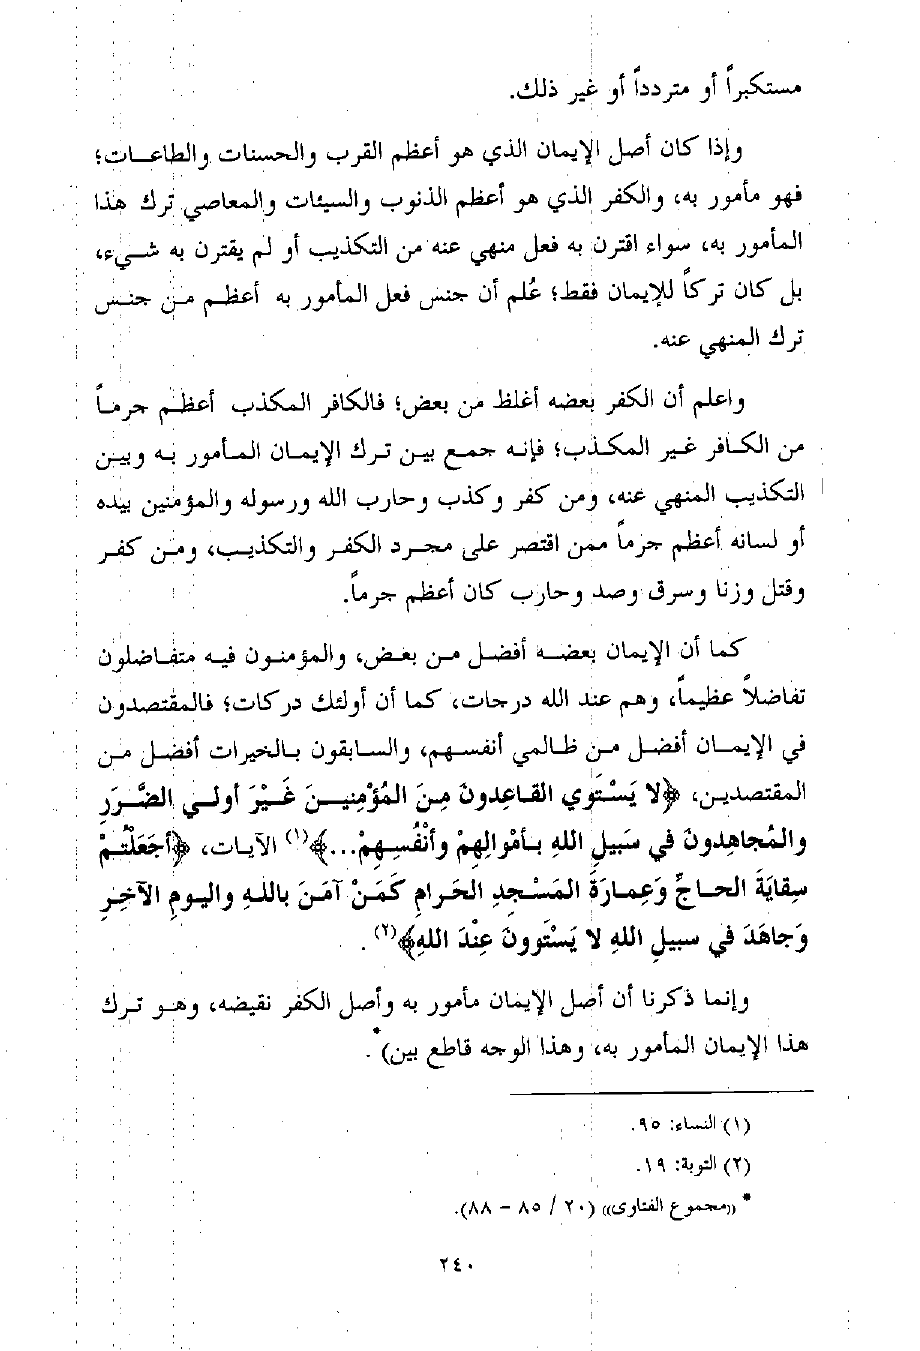 مستكبراً أو متردداً أو غير ذلك.
وإذا كان أصل الإيمان الذي هو أعظم القرب والحسنات والطاعات؛
فهو مأمور به، والكفر الذي هو أعظم الذنوب والسيئات والمعاصي ترك هذا
المأمور به، سواء اقترن به فعل منهي عنه من التكذيب أو لم يقترن به شيء،
بل كان تركاً للإيمان فقط؛ عُلم أن جنس فعل المأمور به أعظم من جنس
ترك المنهي عنه.
واعلم أن الكفر بعضه أغلظ من بعض؛ فالكافر المكذب أعظم جرماً
من الكافر غير المكذب؛ فإنه جمع بين ترك الإيمان المأمور به وبين
التكذيب المنهي عنه، ومن كفر وكذب وحارب الله ورسوله والمؤمنين بيده
أو لسانه أعظم جرماً ممن اقتصر على مجرد الكفر والتكذيب، ومن كفر
وقتل وزنا وسرق وصد وحارب كان أعظم جرماً.
كما أن الإيمان بعضه أفضل من بعض، والمؤمنون فيه متفاضلون
تفاضلاً عظيماً، وهم عند الله درجات، كما أن أولئك دركات؛ فالمقتصدون
في الإيمان أفضل من ظالمي أنفسهم، والسابقون بالخيرات أفضل من
المقتصدين، ﴿لا يَسْتَوي القاعِدونَ مِنَ المُؤْمِنينَ غَيْرَ أولي الضَّرَرِ
والمُجاهِدونَ في سَبيلِ اللهِ بأمْوالِهِمْ وأنْفُسِهِمْ...﴾(١) الآيات، ﴿أجَعَلْتُمْ
سِقايَةَ الحاجِّ وَعِمارَةَ المَسْجِدِ الحَرامِ كَمَنْ آمَنَ باللهِ واليومِ الآخِرِ
وَجاهَدَ في سبيلِ اللهِ لا يَسْتَوونَ عِنْدَ اللهِ﴾(٢).
وإنما ذكرنا أن أصل الإيمان مأمور به وأصل الكفر نقيضه، وهو ترك
هذا الإيمان المأمور به، وهذا الوجه قاطع بين)*.
(١) النساء: ٩٥.
(٢) التوبة: ١٩.
* ((مجموع الفتاوى)) (٢٠ / ٨٥ - ٨٨).
٢٤٠